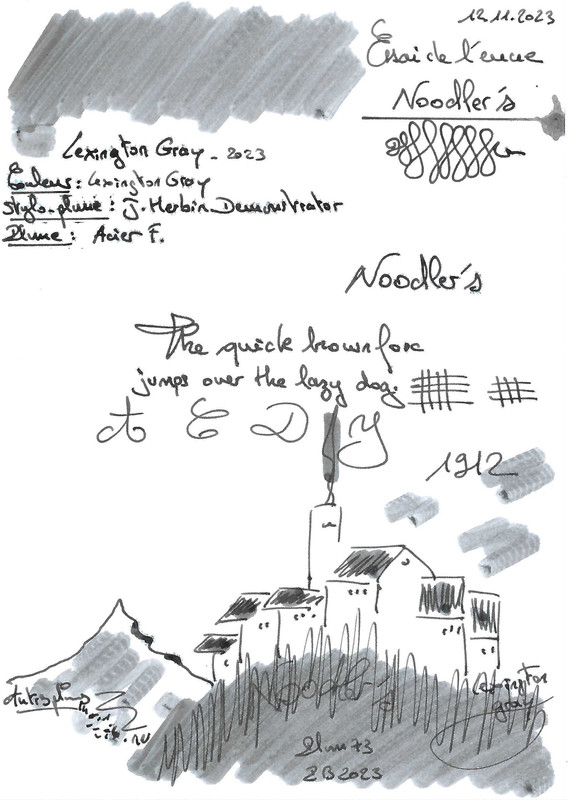 12.11.2023
Essai de l'encre
Noodler's
Lexington Gray - 2023
Couleur : Lexington Gray
Stylo-plume : J. Herbin Demonstrator
Plume : Acier F.
Noodler's
The quick brown fox
jumps over the lazy dog.
A E D Y
1912
Noodler's
Lexington
gray
Plum73
ZB 2023